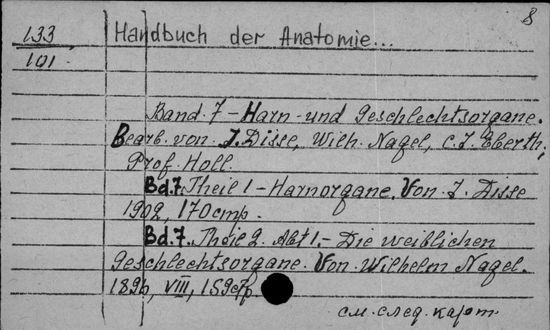 8
133 Handbuch der Anatomie...
101
Band. 7 - Harn - und Geschlechtsorgane.
Bearb. von. J. Disse, Wilh. Nagel, C. J. Eberth,
Prof. Holl.
Bd. 7. Theil 1 - Harnorgane. Von. J. Disse
1902, 170 стр.
Bd. 7. Theile 2. Abt 1. - Die weiblichen
Geschlechtsorgane. Von. Wilhelm Nagel.
1896, VIII, 159 стр.
см. след. карт.